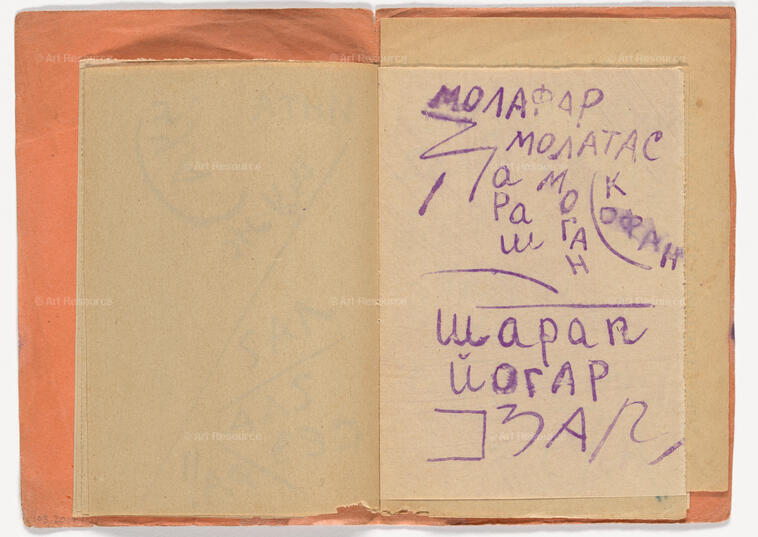 МОЛАФАР
МОЛАТАС
аРаш
МОГАН
КОФАН
шарап
ЙОГАР
ЗАР
© Art Resource
© Art Resource
© Art Resource
© Art Resource
© Art Resource
© Art Resource
© Art Resource
© Art Resource
© Art Resource